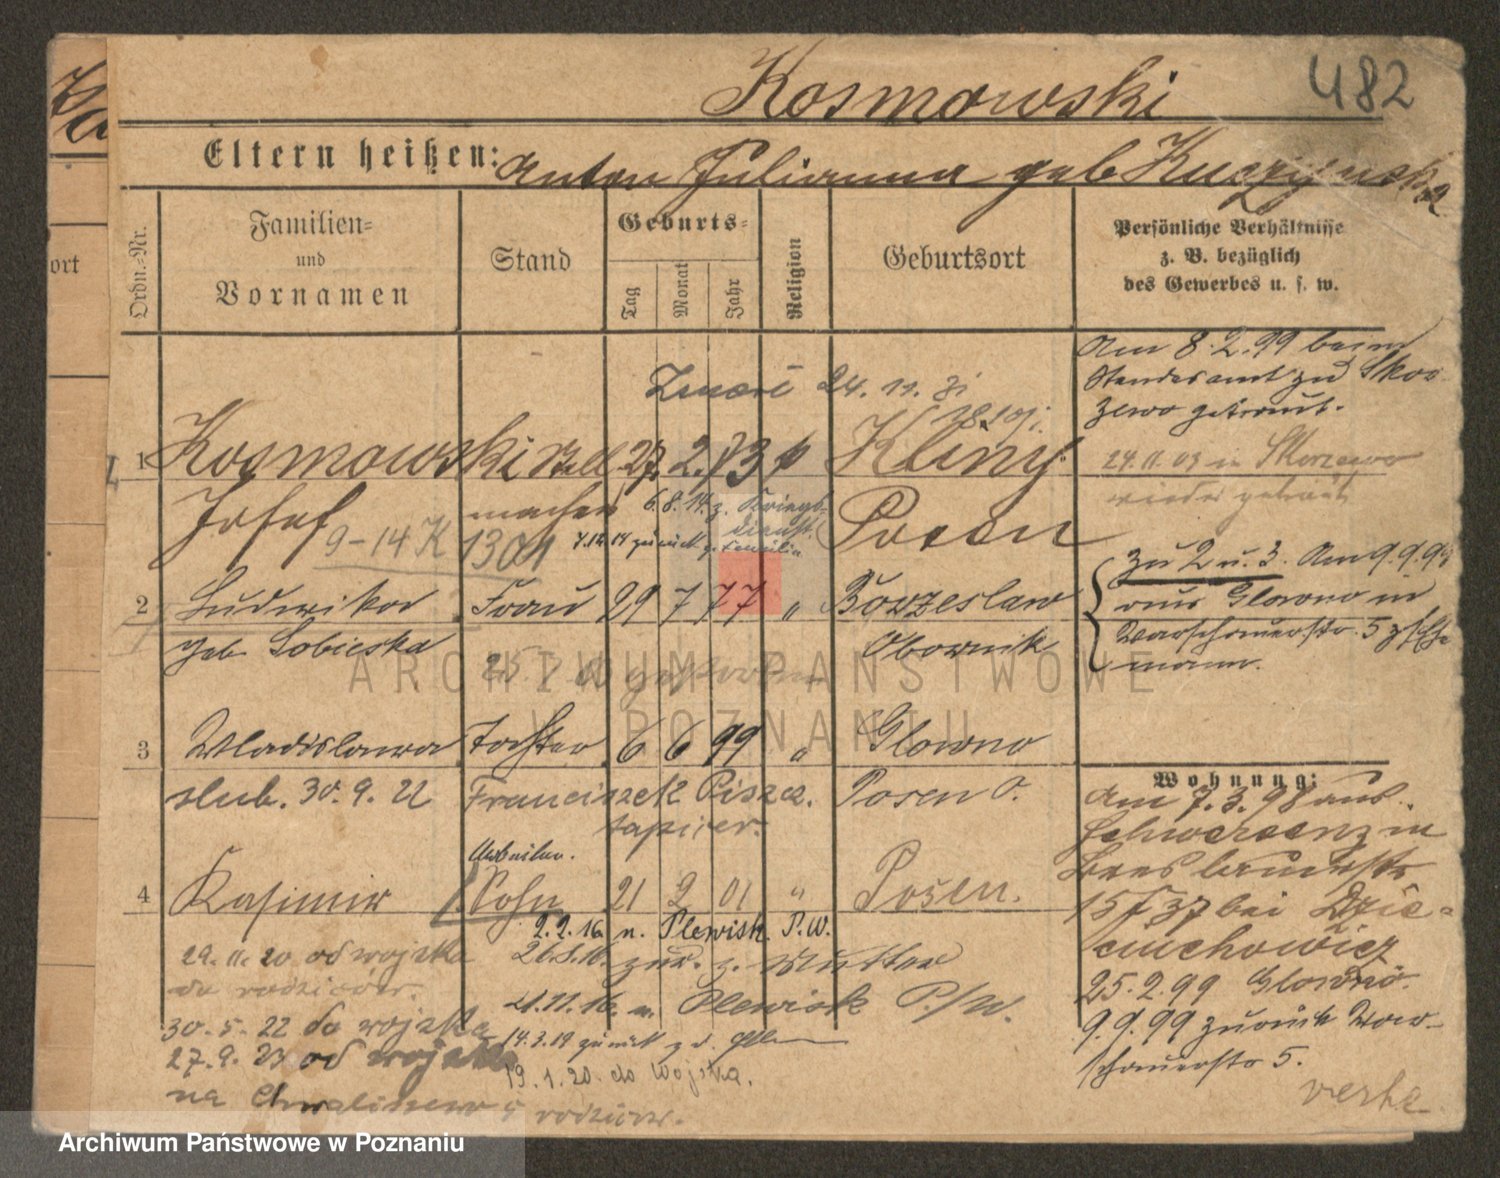 482
Kosmowski
Eltern heißen: Anton Julianna geb Kuczynska
ort
Ordn.-Nr.
Familien-
und
Vornamen
Stand
Geburts-
Tag
Monat
Jahr
Religion
Geburtsort
Persönliche Verhältnisse
z. B. bezüglich
des Gewerbes u. s. w.
Am 8.2.99 beim
Standesamt zu Skor-
zewo getraut.
24.11.03 in Skorzewo
wieder getraut
Zmarł 24.11.31
1 Kosmowski Stell 27 2. 73 k Kliny
Josef macher Posen
9-14 K 1301
6.8.14 z. Kriegs-
dienst.
7.12.14 zurück z. Familie
2 Ludwika Frau 29 7 77 " Borzeslaw
geb Sobieska Obornik
zu 2 u. 3. Am 9.9.99
aus Glowno in
Warschauerstr. 5 z. Ehe-
mann.
25. gestorben
3 Wladislawa Tochter 6 6 99 " Glowno
slub. 30.9.22 Franciszek Posen O.
tapicer.
Wohnung:
Am 7.3.98 aus
Schwersenz in
Breslauerstr
15 bei
25.2.99 Glowno.
9.9.99 zurück War-
schauerstr 5.
verte
Arbeiter.
4 Kasimir Sohn 21 2 01 " Posen.
2.2.16 n. Plewisk. P.W.
26.8.16. zur. z. Mutter
21.11.16. n. Plewisk P./W.
14.3.19 zurück z. d.
19.1.20. do Wojska.
29.11.20 od wojska
do rodziców.
30.5.22 do wojska
27.9.23 od wojska
na Chwaliszewo 5 rodziców.
ARCHIWUM PAŃSTWOWE
W POZNANIU
Archiwum Państwowe w Poznaniu